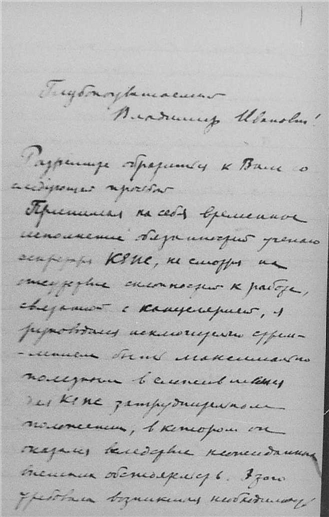 Глубокоуважаемый
Владимир Иванович!
Разрешите обратиться к Вам со
следующей просьбой
Принимая на себя временное
исполнение обязанностей ученого
секретаря КЕПС, не смотря на
отсутствие склонности к работе,
связанной с канцелярией, я
руководился исключительно стрем-
лением быть максимально
полезным в
для КЕПС затруднительном
положении, в котором он
оказался вследствие неожиданных
внешних обстоятельств. Этого
требовала возникшая необходимость